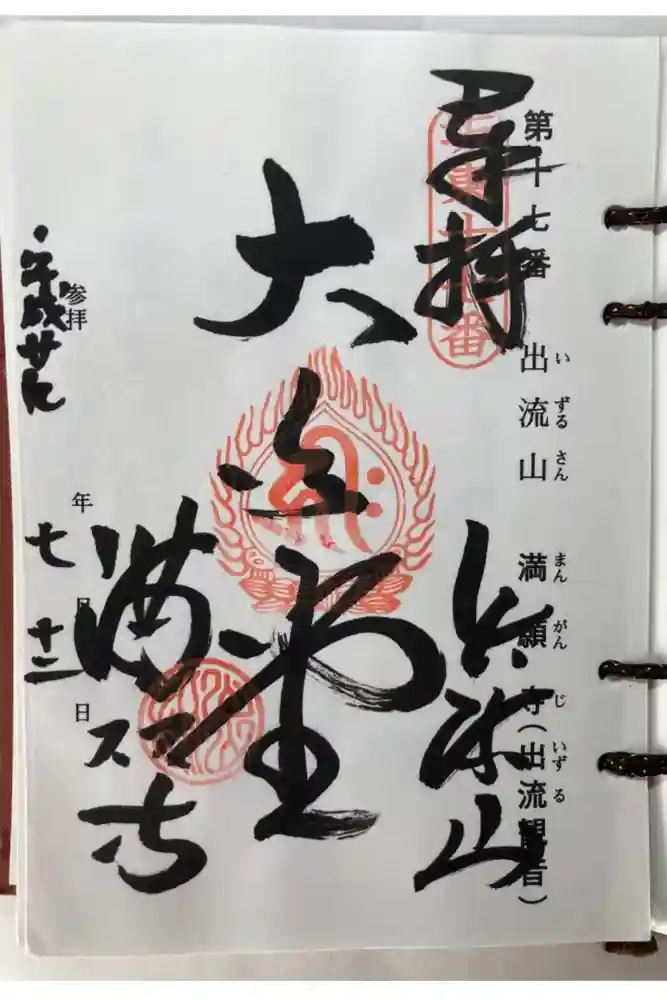 第十七番 出流山 満願寺(出流観音)
いずるさん まんがんじ いずる
奉拝
坂東十七番
出流山
大悲堂
満願寺
参拝 年 月 日
平成廿
七 十二